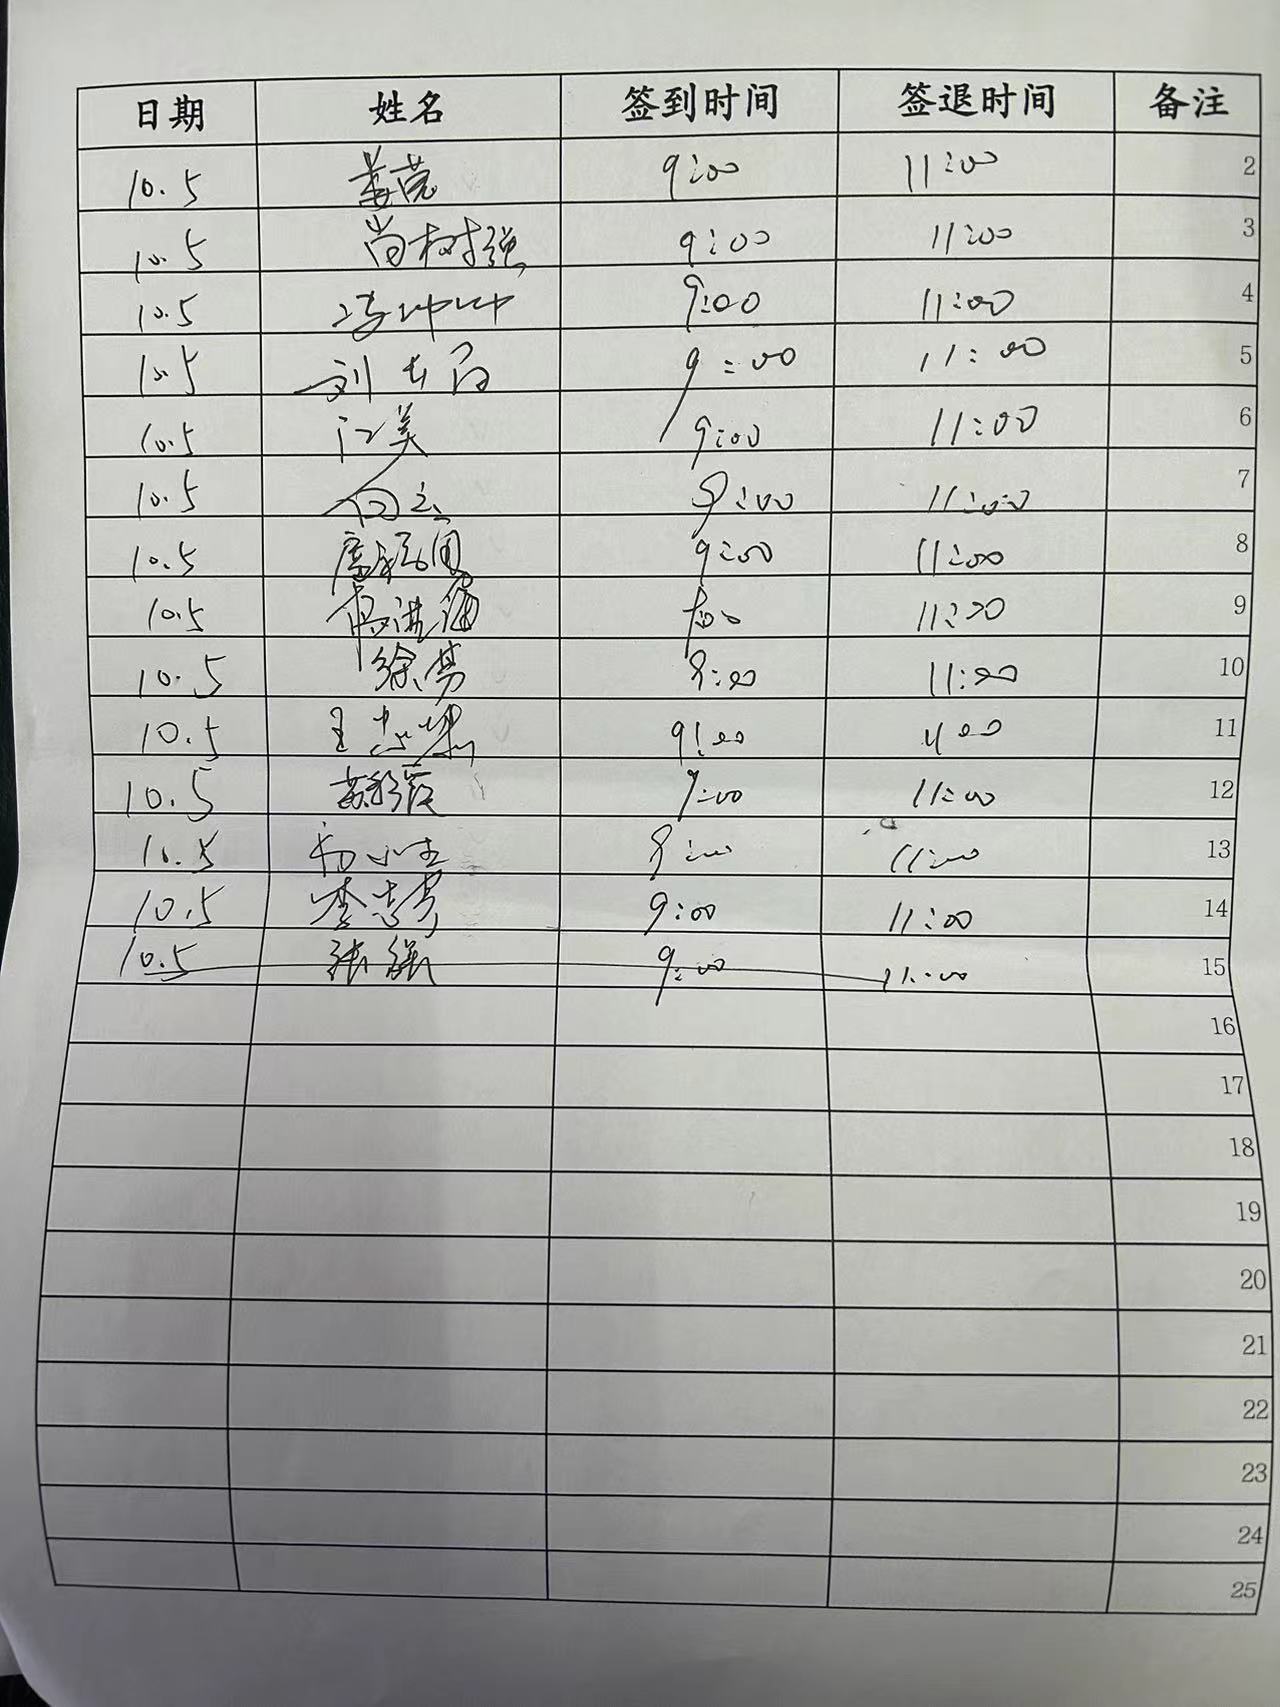 日期 姓名 签到时间 签退时间 备注
10.5 姜莞 9:00 11:00 2
10.5 尚树强 9:00 11:00 3
10.5 冯坤坤 9:00 11:00 4
10.5 刘 9:00 11:00 5
10.5 江美 9:00 11:00 6
10.5 9:00 11:00 7
10.5 9:00 11:00 8
10.5 11:00 9
10.5 徐勇 9:00 11:00 10
10.5 王 9:00 11:00 11
10.5 9:00 11:00 12
10.5 杨小生 9:00 11:00 13
10.5 李志勇 9:00 11:00 14
10.5 张强 9:00 11:00 15
16
17
18
19
20
21
22
23
24
25